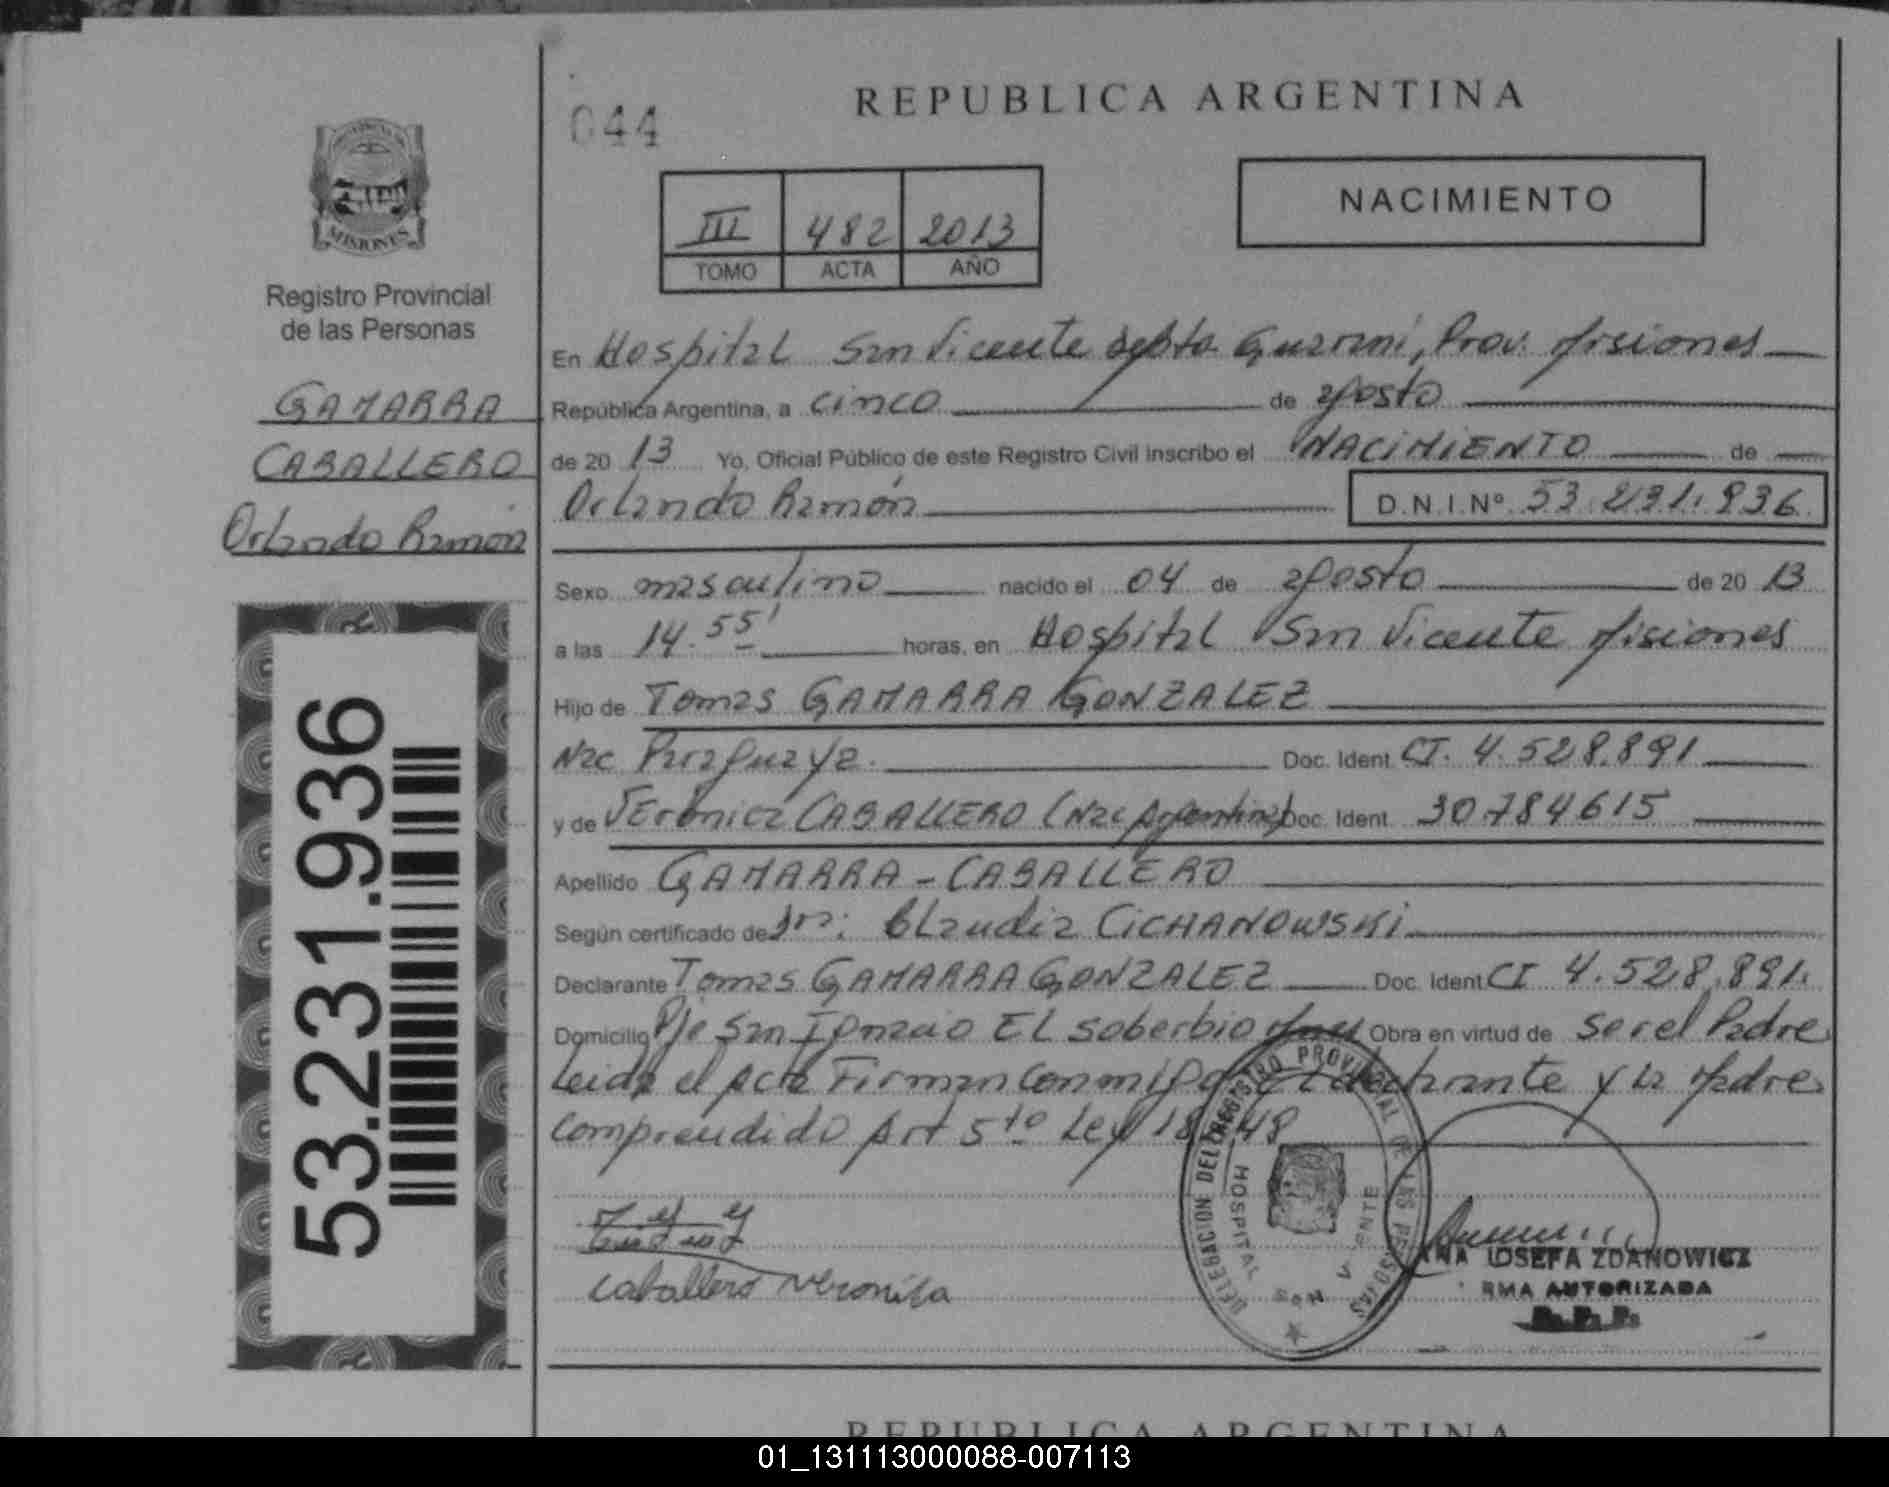 044
REPUBLICA ARGENTINA
III 482 2013
TOMO ACTA AÑO
NACIMIENTO
MISIONES
Registro Provincial
de las Personas
GAMARRA
CABALLERO
Orlando Ramón
53.231.936
En Hospital San Vicente Dpto Guarani, Prov. Misiones
República Argentina, a cinco de agosto
de 20 13 Yo, Oficial Público de este Registro Civil inscribo el NACIMIENTO de
Orlando Ramón D.N.I.Nº 53.231.936
Sexo masculino nacido el 04 de agosto de 20 13
a las 14.55' horas, en Hospital San Vicente Misiones
Hijo de Tomas GAMARRA GONZALEZ
Nac Paraguaya. Doc. Ident. CI. 4.528.891
y de Veronica CABALLERO (Nac Argentina) Doc. Ident. 30784615
Apellido GAMARRA - CABALLERO
Según certificado de Dra: Claudia CICHANOWSKI
Declarante Tomas GAMARRA GONZALEZ Doc. Ident CI 4.528.891.
Domicilio Pje San Ignacio El Soberbio Obra en virtud de ser el Padre
Leida el Acta Firman Conmigo el declarante y la Madre
Comprendido Art 5to Ley 18 48
Caballero Veronica
DELEGACION DEL REGISTRO PROVINCIAL DE LAS PERSONAS
HOSPITAL SAN VICENTE
NA JOSEFA ZDANOWICZ
RMA AUTORIZADA
REPUBLICA ARGENTINA
01_131113000088-007113